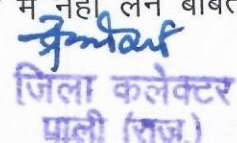 में नहीं लेने बाबत
जिला कलेक्टर
पाली (राज.)